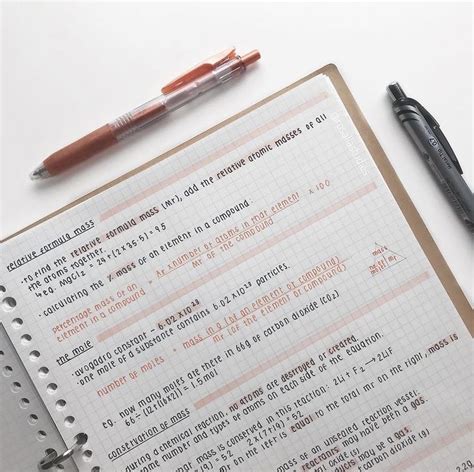 relative formula mass
· to find the relative formula mass (Mr), add the relative atomic masses of all
the atoms together.
↳ eg. MgCl2 = 24 + (2 × 35.5) = 95
· calculating the % mass of an element in a compound.
percentage mass of an element in a compound = Ar × number of atoms in that element / Mr of the compound × 100
the mole
· avogadro constant - 6.02 × 10²³
· one mole of a substance contains 6.02 × 10²³ particles.
number of moles = mass in g (of an element or compound) / Mr (of the element or compound)
eg. how many moles are there in 66g of carbon dioxide (CO2)
66 ÷ (12 + (16×2)) = 1.5 mol
conservation of mass
during a chemical reaction, no atoms are destroyed or created
same number and types of atoms on each side of the equation.
mass is conserved in this reaction: 2Li + F2 → 2LiF
2 × (7+19) = 52
on the left is equal to the total Mr on the right, mass is
mass of an unsealed reaction vessel:
reactants may have been a gas.